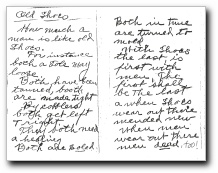 Old Shoes
How much a
man is like old
shoes.
For instance
both a sole may
lose
Both have been
tanned, both
are made tight
By cobblers
both get left
& right.
They both need
a
Both are soled.
Both in time
are turned to
mold
With shoes
the last is
first with
men, the
first shall
be the last
when shoes
wear out they're
mended new
when men
wear out they're
men dead, too!